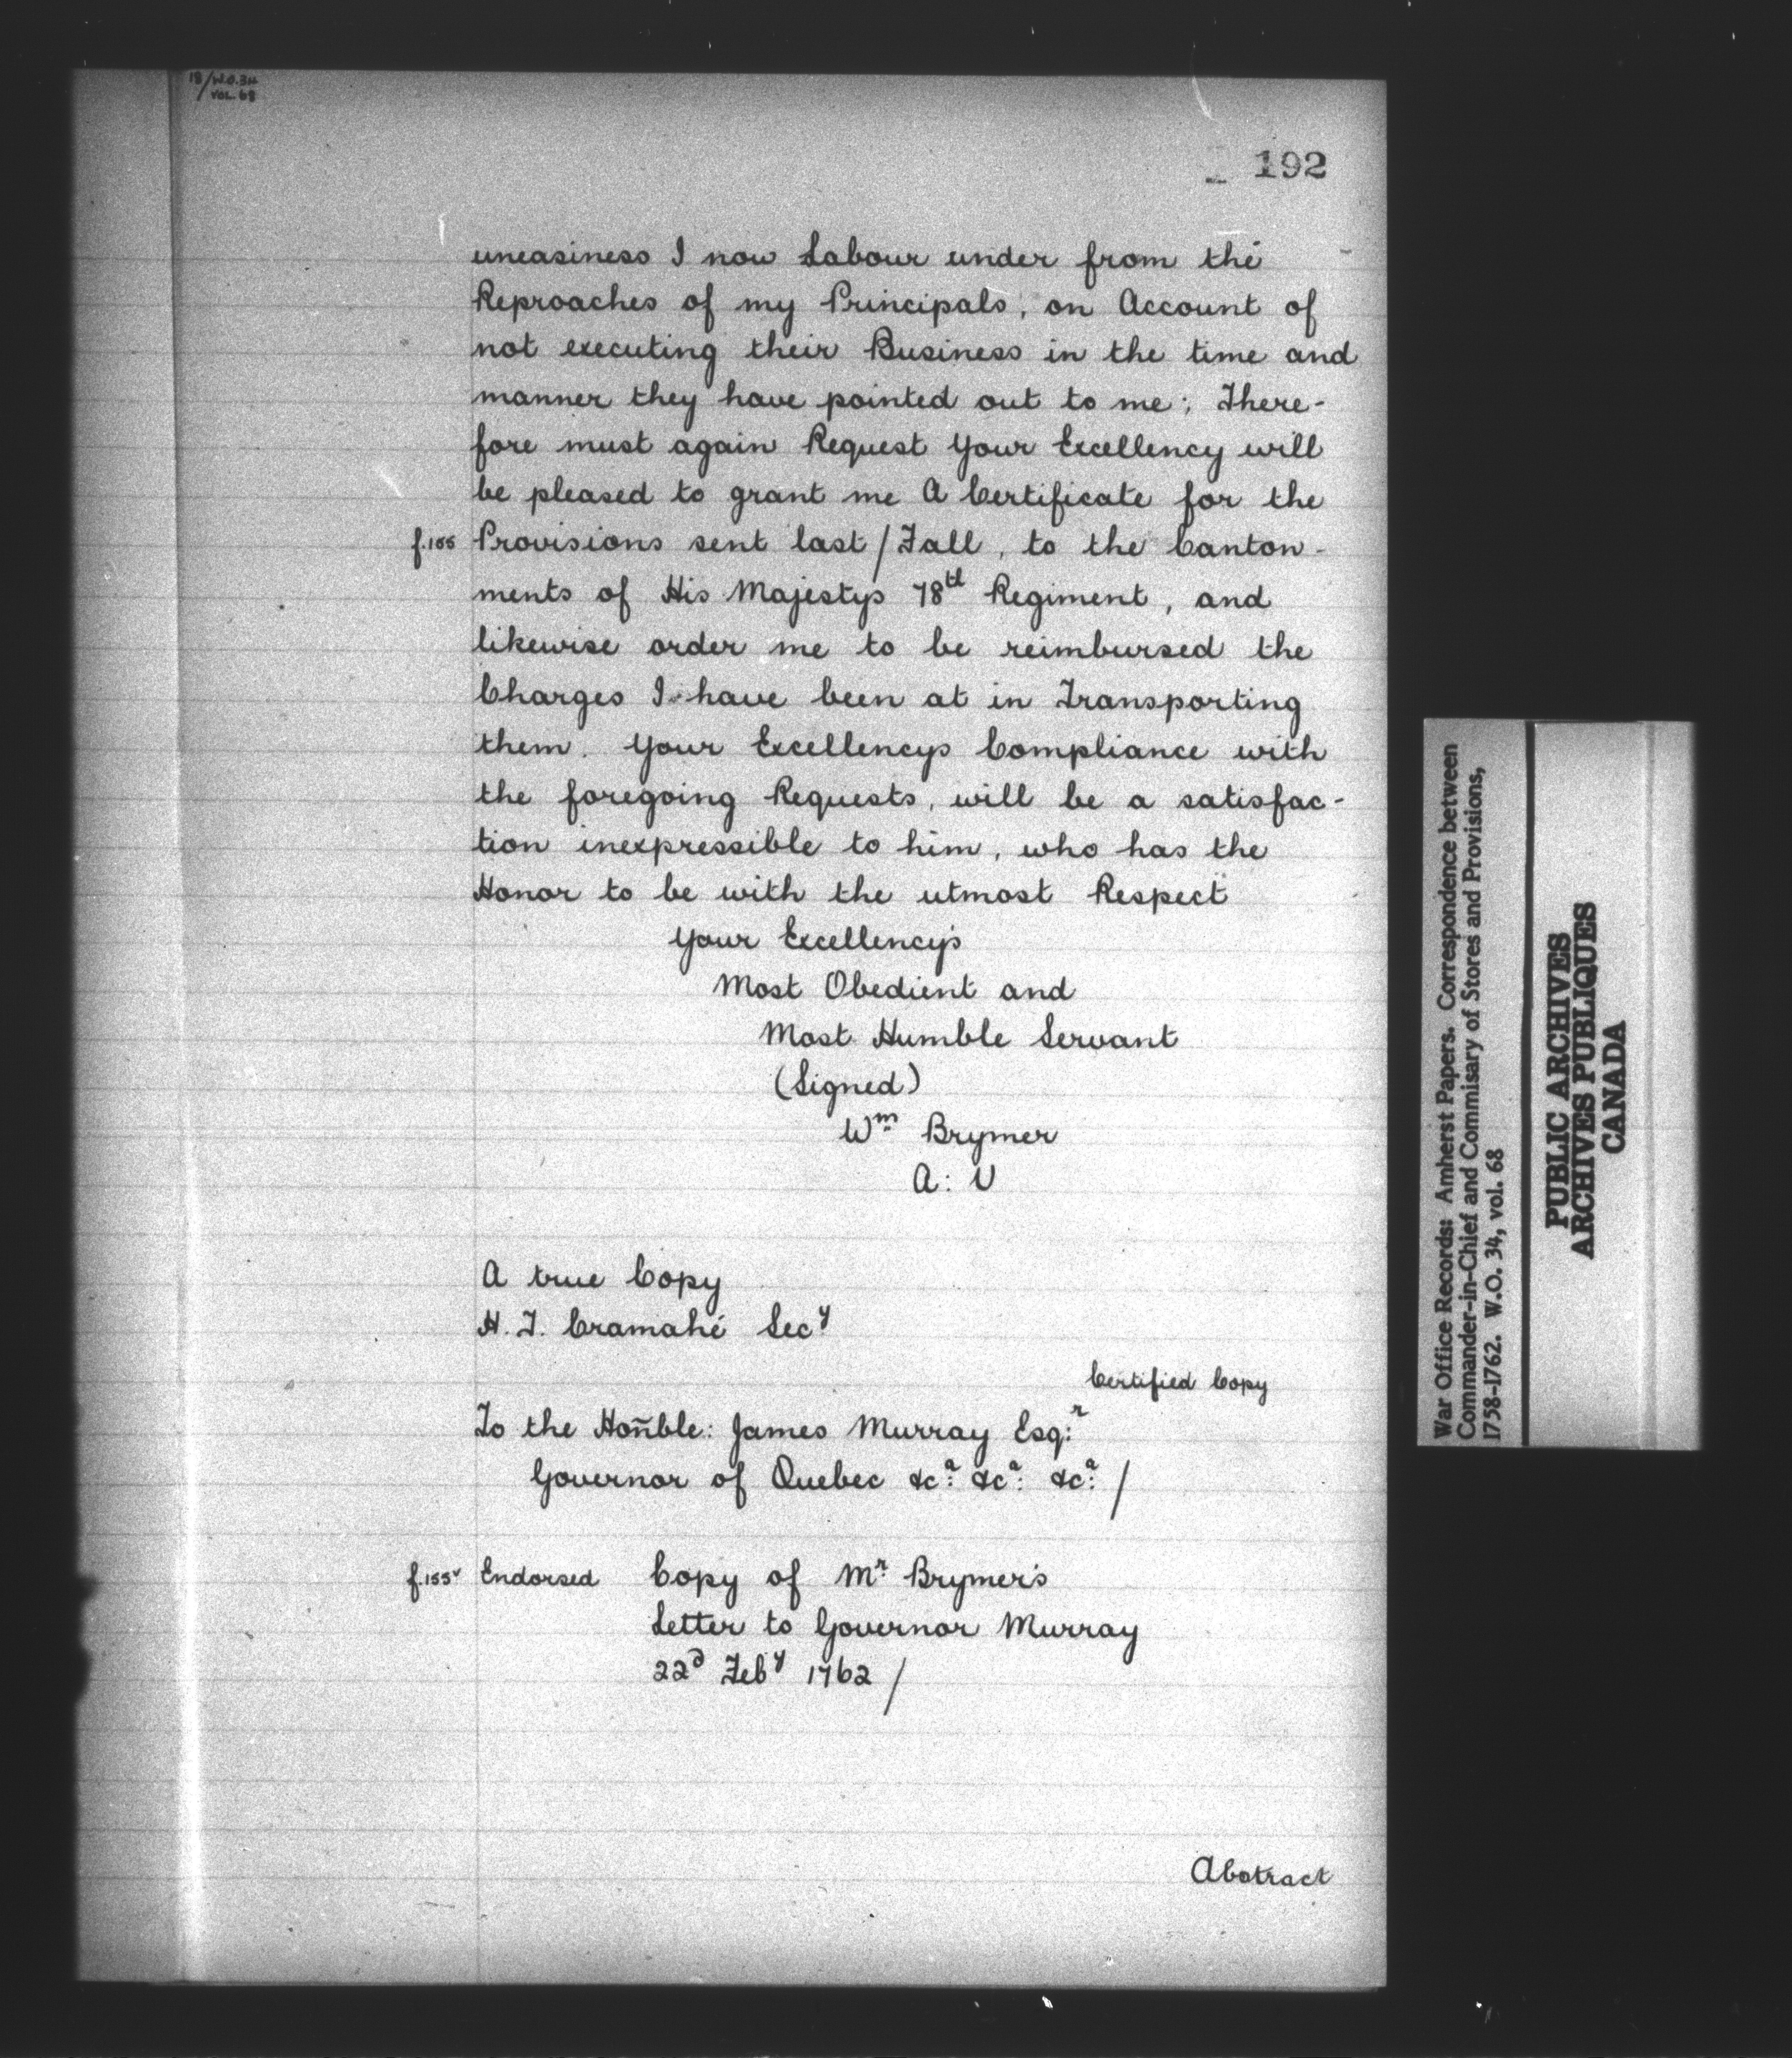 18/W.O.34
VOL. 68
192
uneasiness I now Labour under from the
Reproaches of my Principals, on Account of
not executing their Business in the time and
manner they have pointed out to me; There-
fore must again Request Your Excellency will
be pleased to grant me A Certificate for the
f.155 Provisions sent last / Fall, to the Canton-
ments of His Majestys 78th Regiment, and
likewise order me to be reimbursed the
Charges I have been at in Transporting
them. Your Excellencys Compliance with
the foregoing Requests, will be a satisfac-
tion inexpressible to him, who has the
Honor to be with the utmost Respect
Your Excellency's
Most Obedient and
Most Humble Servant
(Signed)
Wm Brymer
A: V
A true Copy
H. T. Cramahé Secy
Certified Copy
To the Hoñble: James Murray Esq:r
Governor of Quebec &c:a &c:a &c:a /
f.155v Endorsed Copy of Mr Brymer's
Letter to Governor Murray
22d Feby 1762 /
Abstract
War Office Records: Amherst Papers. Correspondence between
Commander-in-Chief and Commisary of Stores and Provisions,
1758-1762. W.O. 34, vol. 68
PUBLIC ARCHIVES
ARCHIVES PUBLIQUES
CANADA